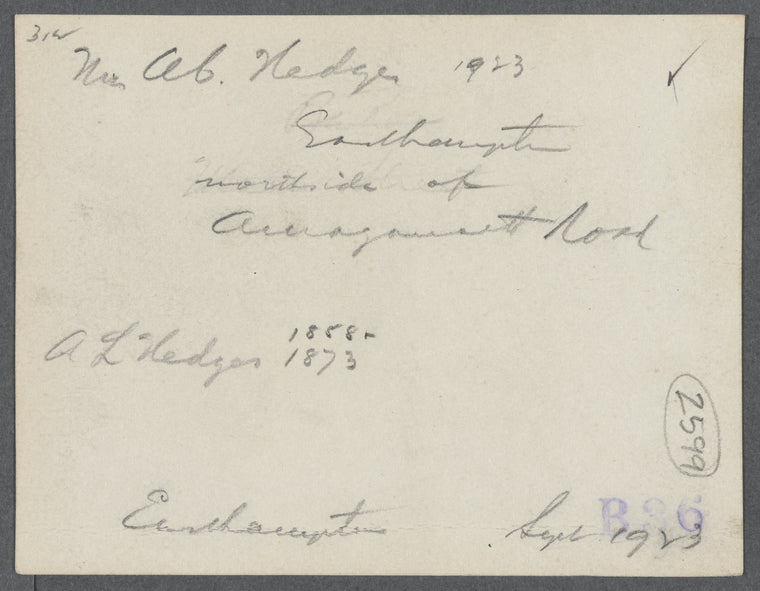 31v
Mrs A.C. Hedges 1923
Easthampton
northside of
Amagansett Road
A L Hedges 1858-
1873
2599
Easthampton Sept 1923
B 36